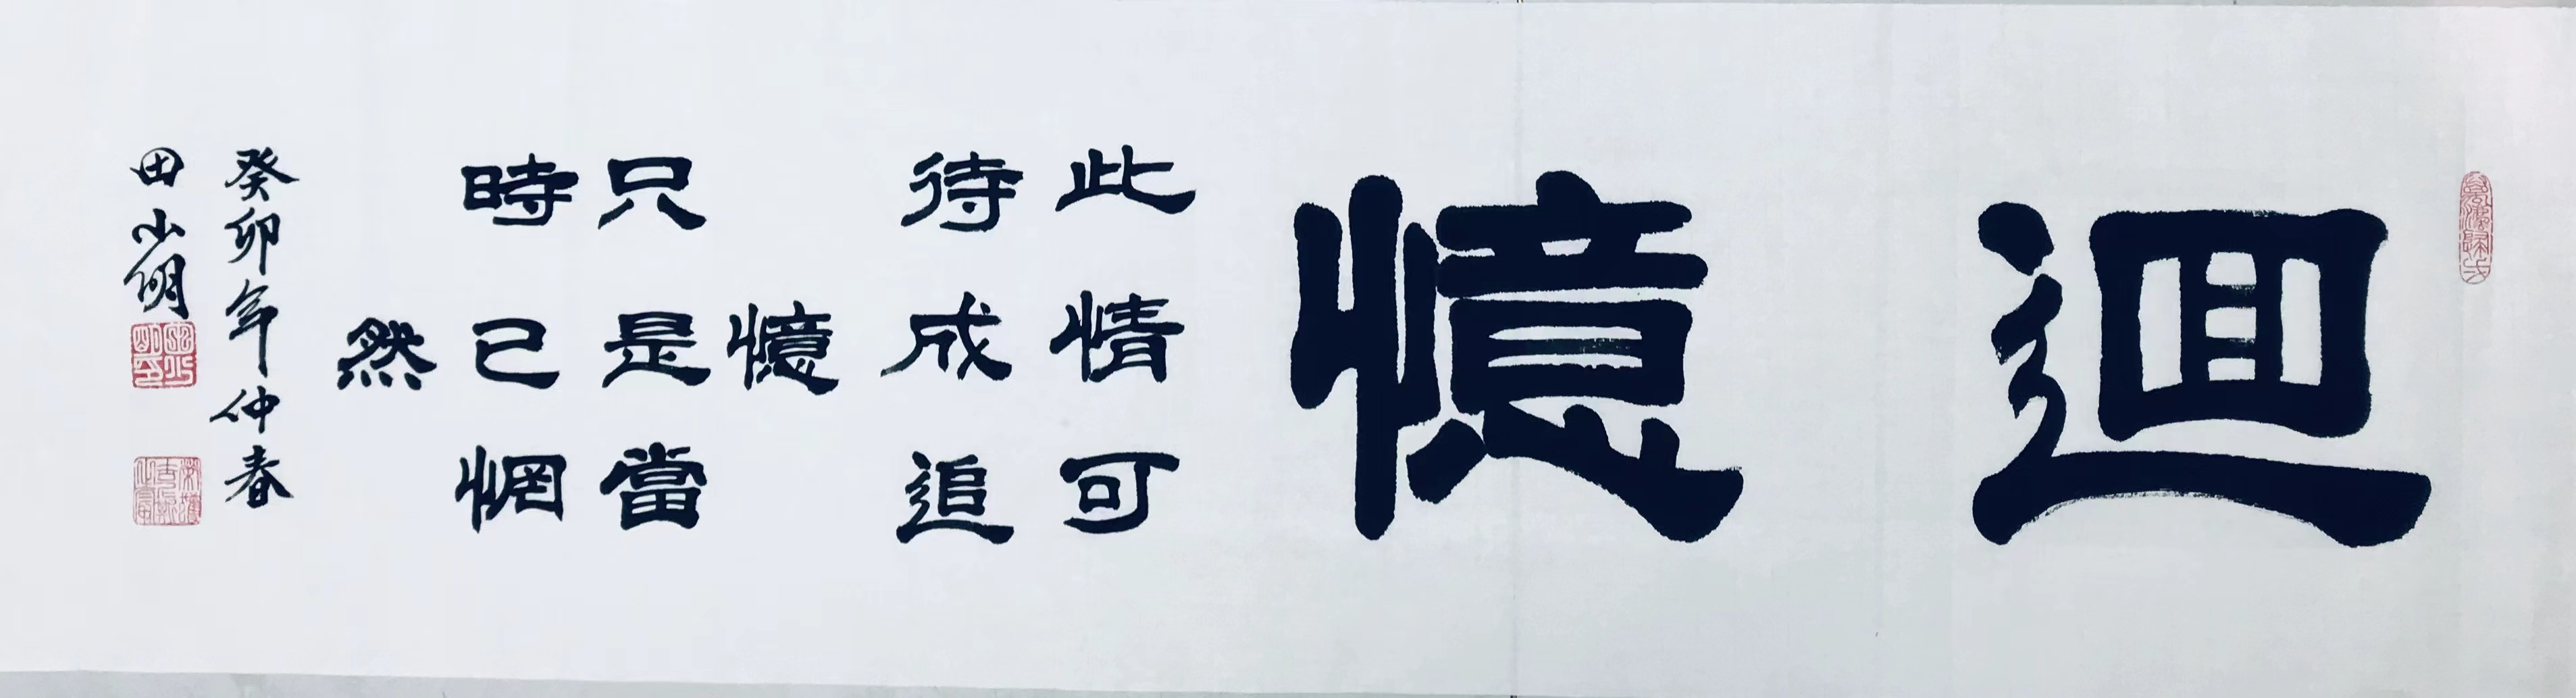 迴憶
此情可
待成追
憶
只是當
時已惘
然
癸卯年仲春
田少明